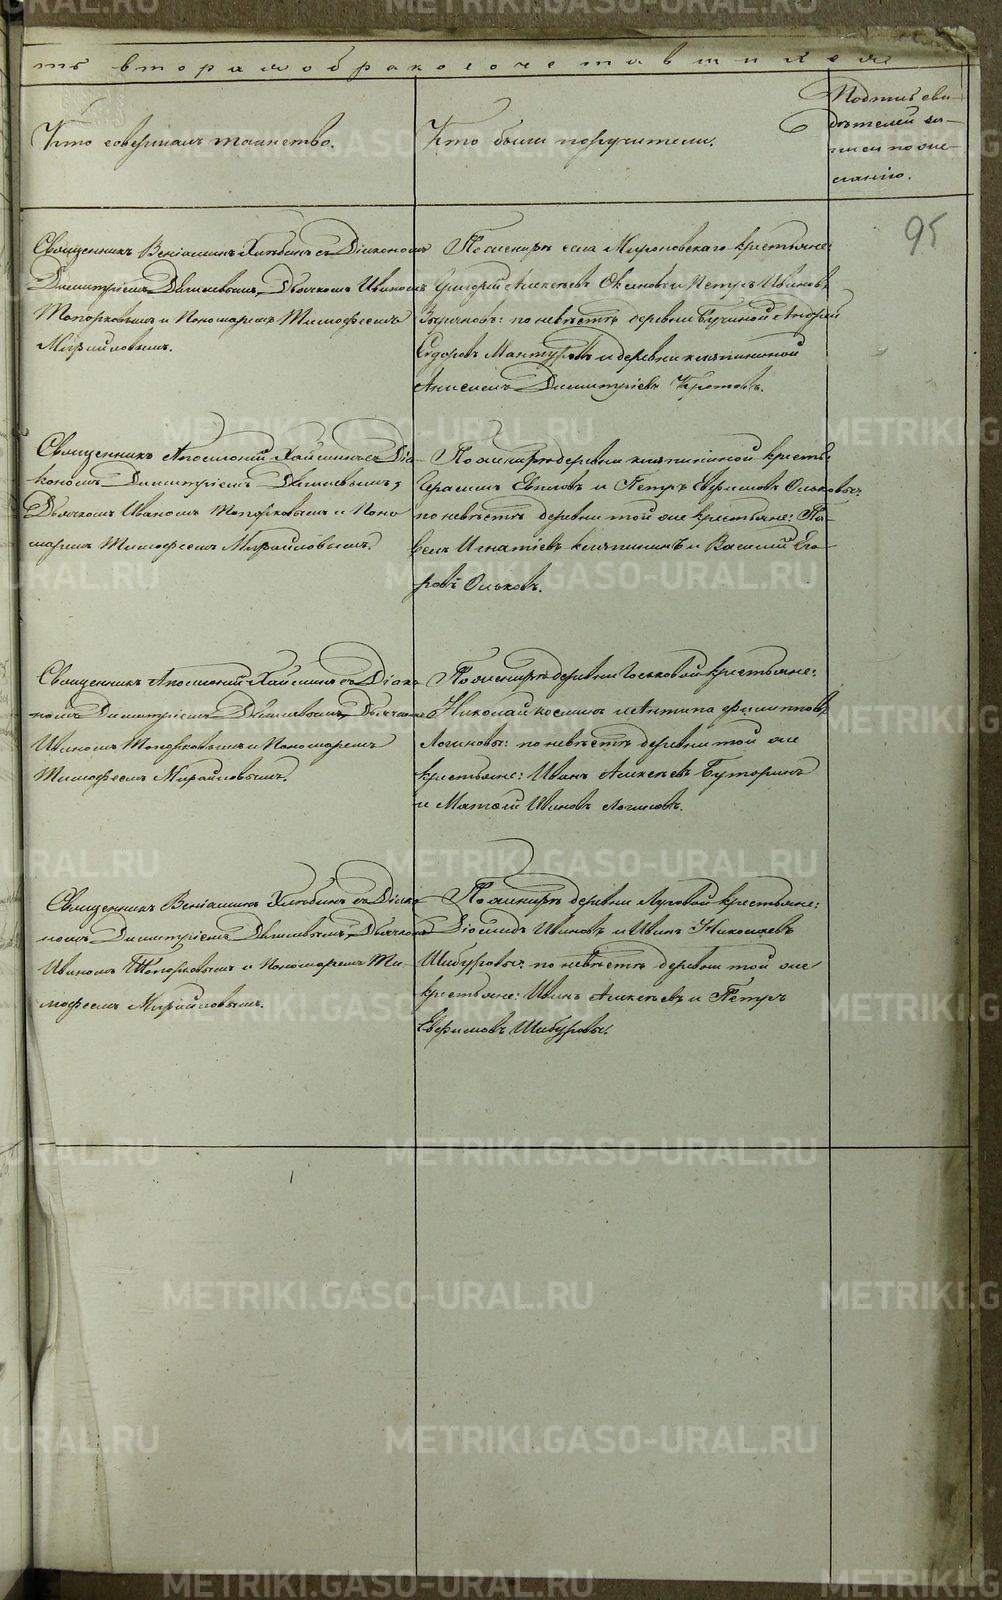 ть вторая о бракосочетавшихся
Кто совершалъ таинство.
Кто были поручители.
Подпись сви-
дѣтелей за-
писи по же-
ланію.
95
Священникъ Веніаминъ Хлѣбинъ съ Діакономъ
Димитріемъ Дягилевымъ, Дьячкомъ Иваномъ
Топорковымъ и Пономаремъ Тимофеемъ
Михайловымъ.
По женихѣ села Мироновскаго крестьяне:
Григорій Алексѣевъ и Петръ Ивановъ
Зыряновъ: по невѣстѣ деревни Бучиной Андрей
Егоровъ Мантуровъ и деревни Кляпининой
Анисимъ Димитріевъ Кротовъ.
Священникъ Аполлоній съ Діа-
кономъ Димитріемъ Дягилевымъ,
Дьячкомъ Иваномъ Топорковымъ и Поно
маремъ Тимофеемъ Михайловымъ.
По женихѣ деревни Кляпининой кресть:
Герасимъ и Петръ Евфимовъ Ольковы:
по невѣстѣ деревни той же крестьяне: Па-
велъ Игнатіевъ Кляпининъ и Василій Его-
ровъ Ольковъ.
Священникъ Аполлоній съ Діако
номъ Димитріемъ Дягилевымъ, Дьячкомъ
Иваномъ Топорковымъ и Пономаремъ
Тимофеемъ Михайловымъ.
По женихѣ деревни крестьяне:
Николай Косминъ и Антипа Филипповъ
Логиновы: по невѣстѣ деревни той же
крестьяне: Иванъ Алексѣевъ Буторинъ
и Матвѣй Ивановъ Логиновъ.
Священникъ Веніаминъ Хлѣбинъ съ Діако
номъ Димитріемъ Дягилевымъ, Дьячкомъ
Иваномъ Топорковымъ и Пономаремъ Ти-
мофеемъ Михайловымъ.
По женихѣ деревни Луговой крестьяне:
Діомидъ Ивановъ и Иванъ Николаевъ
Шибуровы: по невѣстѣ деревни той же
крестьяне: Иванъ Алексѣевъ и Петръ
Евфимовъ Шибуровы.
METRIKI.GASO-URAL.RU